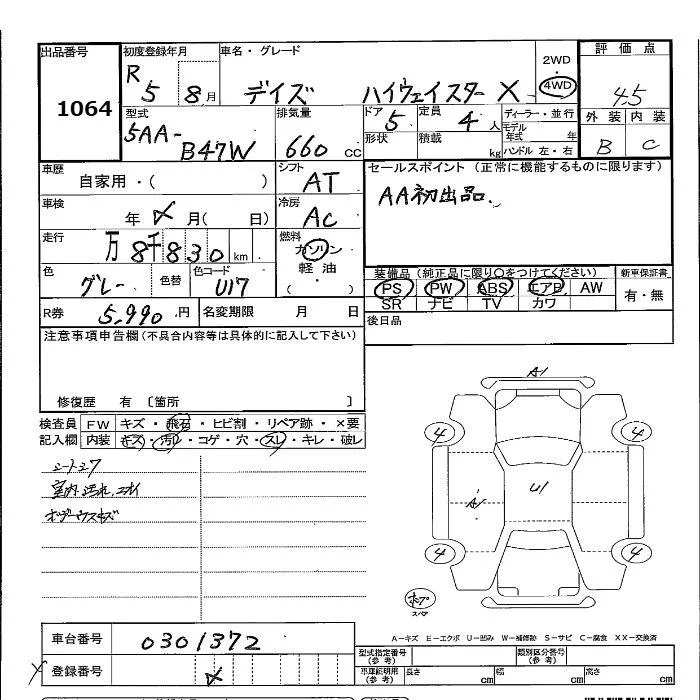 出品番号 初度登録年月 車名・グレード 2WD 評価点
1064 R 5 8月 デイズ ハイウェイスター X 4WD 4.5
型式 排気量 ドア 5 定員 4人 ディーラー・並行 外装 内装
5AA-B47W 660 cc 形状 積載 kg モデル年式 年 B C
ハンドル 左・右
車歴 自家用・( ) シフト AT セールスポイント (正常に機能するものに限ります)
車検 年 月( 日) 冷房 AC AA初出品.
走行 万8千830km 燃料 ガソリン
軽油
( ・ )
色 グレー 色替 色コード U17 装備品 (純正品に限り○をつけてください) 新車保証書
PS PW ABS エアB AW 有・無
SR ナビ TV カワ
R券 5,990円 名変期限 月 日 後日品
注意事項申告欄(不具合内容等は具体的に記入して下さい)
修復歴 有 〔箇所 〕
検査員 FW キズ・飛石・ヒビ割・リペア跡・×要
記入欄 内装 キズ・汚れ・コゲ・穴・スレ・キレ・破レ
室内汚れ
A1
4 4
A1 U1
4 4
スペア
A-キズ E-エクボ U-凹み W-補修跡 S-サビ C-腐食 XX-交換済
車台番号 0301372 型式指定番号(参考) 類別区分番号(参考)
登録番号 車庫証明用(参考) 長さ cm 幅 cm 高さ cm